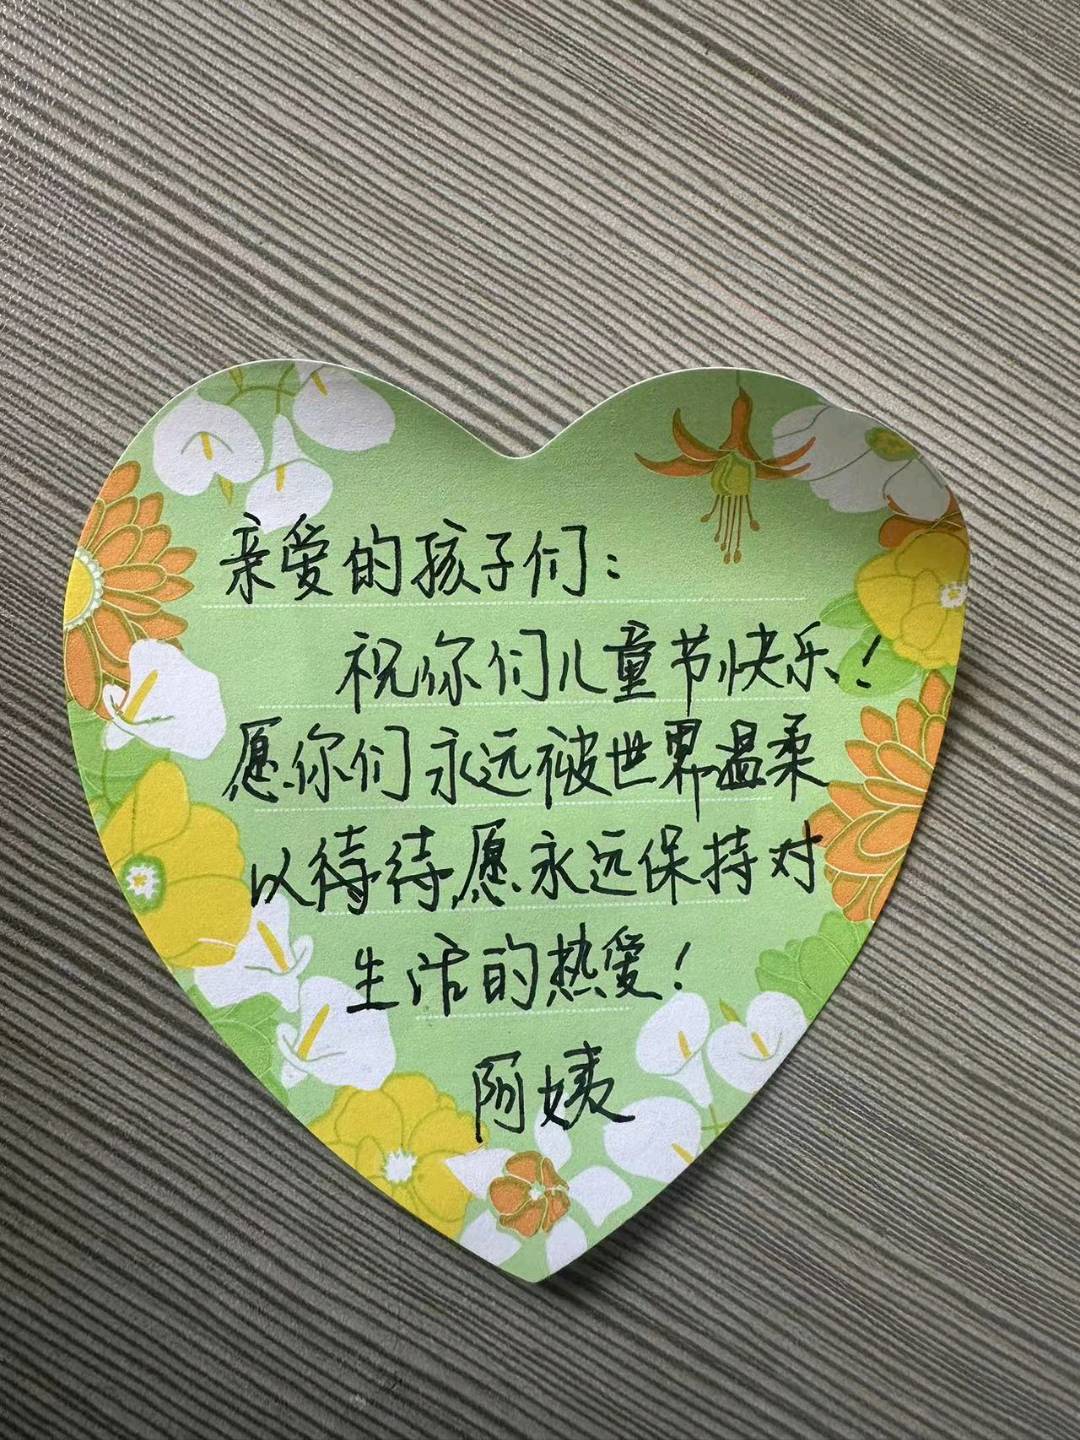 亲爱的孩子们：
祝你们儿童节快乐！
愿你们永远被世界温柔
以待待愿永远保持对
生活的热爱！
阿姨